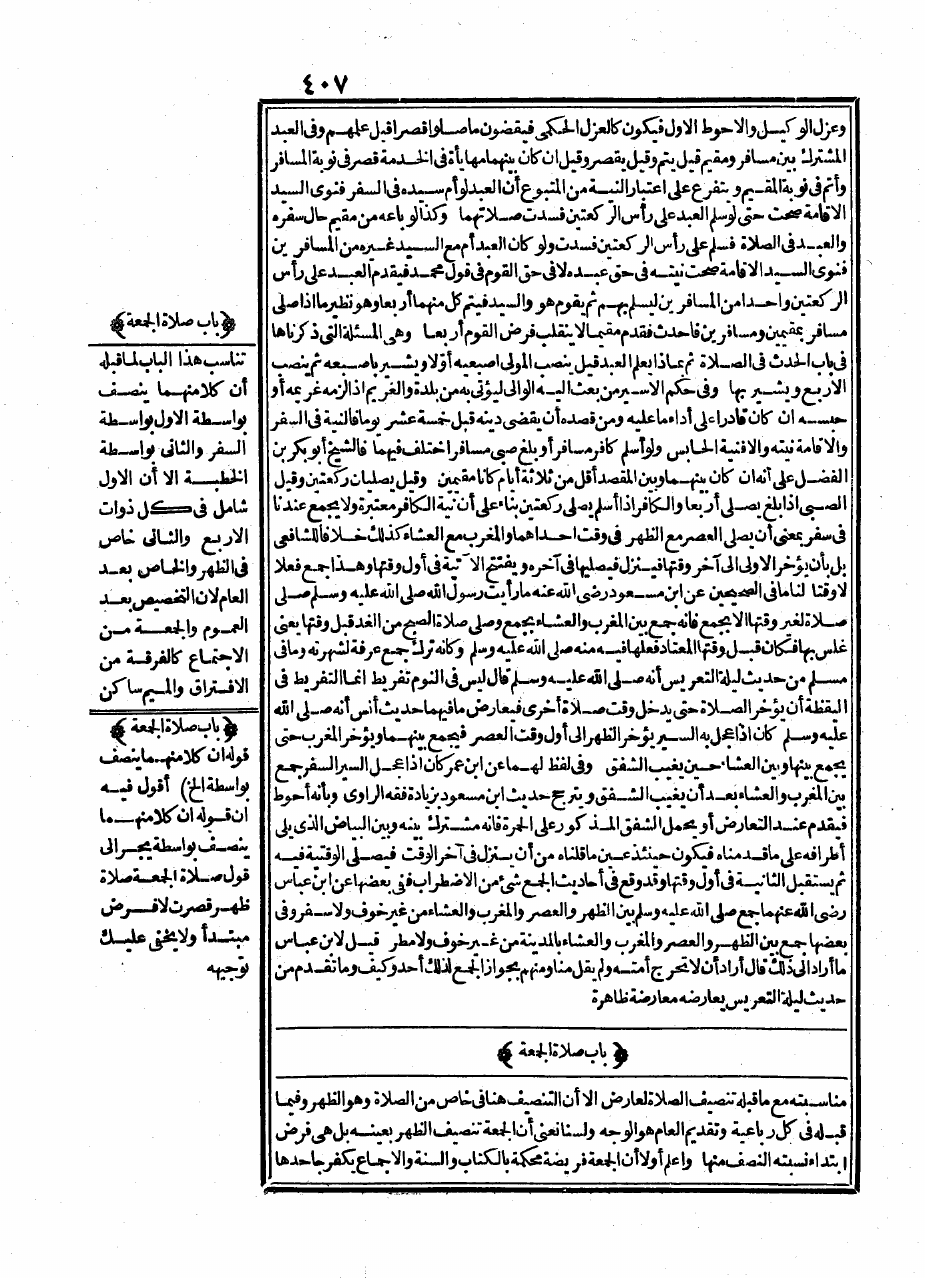 ٤٠٧
وعزل الوكيل والاحوط الاول فيكون كالعزل الحكمى فيقضون ما صلوا قصرا قبل علمهم وفى العبد
المشترك بين مسافر ومقيم قيل يتم وقيل يقصر وقيل ان كان بينهما مهايأة فى الخدمة قصر فى نوبة المسافر
وأتم فى نوبة المقيم ويتفرع على اعتبار النية من المتبوع أن العبد لو أم سيده فى السفر فنوى السيد
الاقامة صحت حتى لو سلم العبد على رأس الركعتين فسدت صلاتهما وكذا لو باعه من مقيم حال سفره
والعبد فى الصلاة فسلم على رأس الركعتين فسدت ولو كان العبد أم مع السيد غيره من المسافرين
فنوى السيد الاقامة صحت نيته فى حق عبده لا فى حق القوم فى قول محمد فيقدم العبد على رأس
الركعتين واحدا من المسافرين ليسلم بهم ثم يقوم هو والسيد فيتم كل منهما أربعا وهو نظير ما اذا صلى
مسافر بمقيمين ومسافرين فاحدث فقدم مقيما لا ينقلب فرض القوم أربعا وهى المسئلة التى ذكرناها
فى باب الحدث فى الصلاة ثم بماذا يعلم العبد قيل ينصب المولى اصبعيه أولا ويشير باصبعه ثم ينصب
الاربع ويشير بها وفى حكم الاسير من بعث اليه الوالى ليؤتى به من بلدة والغريم اذا لزمه غريمه أو
حبسه ان كان قادرا على أداء ما عليه ومن قصده أن يقضى دينه قبل خمسة عشر يوما فالنية فى السفر
والاقامة نيته والا فنية الحابس ولو أسلم كافر مسافر أو بلغ صبى مسافر اختلف فيهما فالشيخ أبو بكر بن
الفضل على أنه ان كان بينهما وبين المقصد أقل من ثلاثة أيام كانا مقيمين وقيل يصليان ركعتين وقيل
الصبى اذا بلغ يصلى أربعا والكافر اذا أسلم يصلى ركعتين بناء على أن نية الكافر معتبرة ولا يجمع عندنا
فى سفر بمعنى أن يصلى العصر مع الظهر فى وقت احداهما والمغرب مع العشاء كذلك خلافا للشافعى
بل بأن يؤخر الاولى الى آخر وقتها فينزل فيصليها فى آخره ويفتتح الآتية فى أول وقتها وهذا جمع فعلا
لا وقتا لنا ما فى الصحيحين عن ابن مسعود رضى الله عنه ما رأيت رسول الله صلى الله عليه وسلم صلى
صلاة لغير وقتها الا بجمع فانه جمع بين المغرب والعشاء بجمع وصلى صلاة الصبح من الغد قبل وقتها يعنى
غلس بها فكان قبل وقتها المعتاد فعلها فيه منه صلى الله عليه وسلم وكانه ترك جمع عرفة لشهرته وما فى
مسلم من حديث ليلة التعريس أنه صلى الله عليه وسلم قال ليس فى النوم تفريط انما التفريط فى
اليقظة أن يؤخر الصلاة حتى يدخل وقت صلاة أخرى فيعارض ما فيهما حديث أنس أنه صلى الله
عليه وسلم كان اذا عجل به السير يؤخر الظهر الى أول وقت العصر فيجمع بينهما ويؤخر المغرب حتى
يجمع بينها وبين العشاء حين يغيب الشفق وفى لفظ لهما عن ابن عمر كان اذا عجل السير السفر جمع
بين المغرب والعشاء بعد أن يغيب الشفق ويترجح حديث ابن مسعود بزيادة فقه الراوى وبأنه أحوط
فيقدم عند التعارض أو يحمل الشفق المذكور على الحمرة فانه مشترك بينه وبين البياض الذى يلى
أطرافه على ما قدمناه فيكون حينئذ عين ما قلناه من أن ينزل فى آخر الوقت فيصلى الوقتية فيه
ثم يستقبل الثانية فى أول وقتها وقد وقع فى أحاديث الجمع شئ من الاضطراب ففى بعضها عن ابن عباس
رضى الله عنهما جمع صلى الله عليه وسلم بين الظهر والعصر والمغرب والعشاء من غير خوف ولا سفر وفى
بعضها جمع بين الظهر والعصر والمغرب والعشاء بالمدينة من غير خوف ولا مطر قيل لابن عباس
ما أراد الى ذلك قال أراد أن لا تحرج أمته ولم يقل منا ومنهم بجواز الجمع لذلك أحد وكيف وما تقدم من
حديث ليلة التعريس يعارضه معارضة ظاهرة
﴿باب صلاة الجمعة﴾
مناسبته مع ما قبله تنصيف الصلاة لعارض الا أن التنصيف هنا فى خاص من الصلاة وهو الظهر وفيما
قبله فى كل رباعية وتقديم العام هو الوجه ولسنا نعنى أن الجمعة تنصيف الظهر بعينه بل هى فرض
ابتداء نسبته النصف منها واعلم أولا أن الجمعة فريضة محكمة بالكتاب والسنة والاجماع يكفر جاحدها
﴿باب صلاة الجمعة﴾
تناسب هذا الباب لما قبله
أن كلا منهما ينصف
بواسطة الاول بواسطة
السفر والثانى بواسطة
الخطبة الا أن الاول
شامل فى كل ذوات
الاربع والثانى خاص
فى الظهر والخاص بعد
العام لان التخصيص بعد
العموم والجمعة من
الاجتماع كالفرقة من
الافتراق والميم ساكن
﴿باب صلاة الجمعة﴾
قوله ان كلا منهما ينصف
بواسطة الخ) أقول فيه
ان قوله ان كلا منهما
ينصف بواسطة يجر الى
قول صلاة الجمعة صلاة
ظهر قصرت لا فرض
مبتدأ ولا يخفى عليك
توجيهه